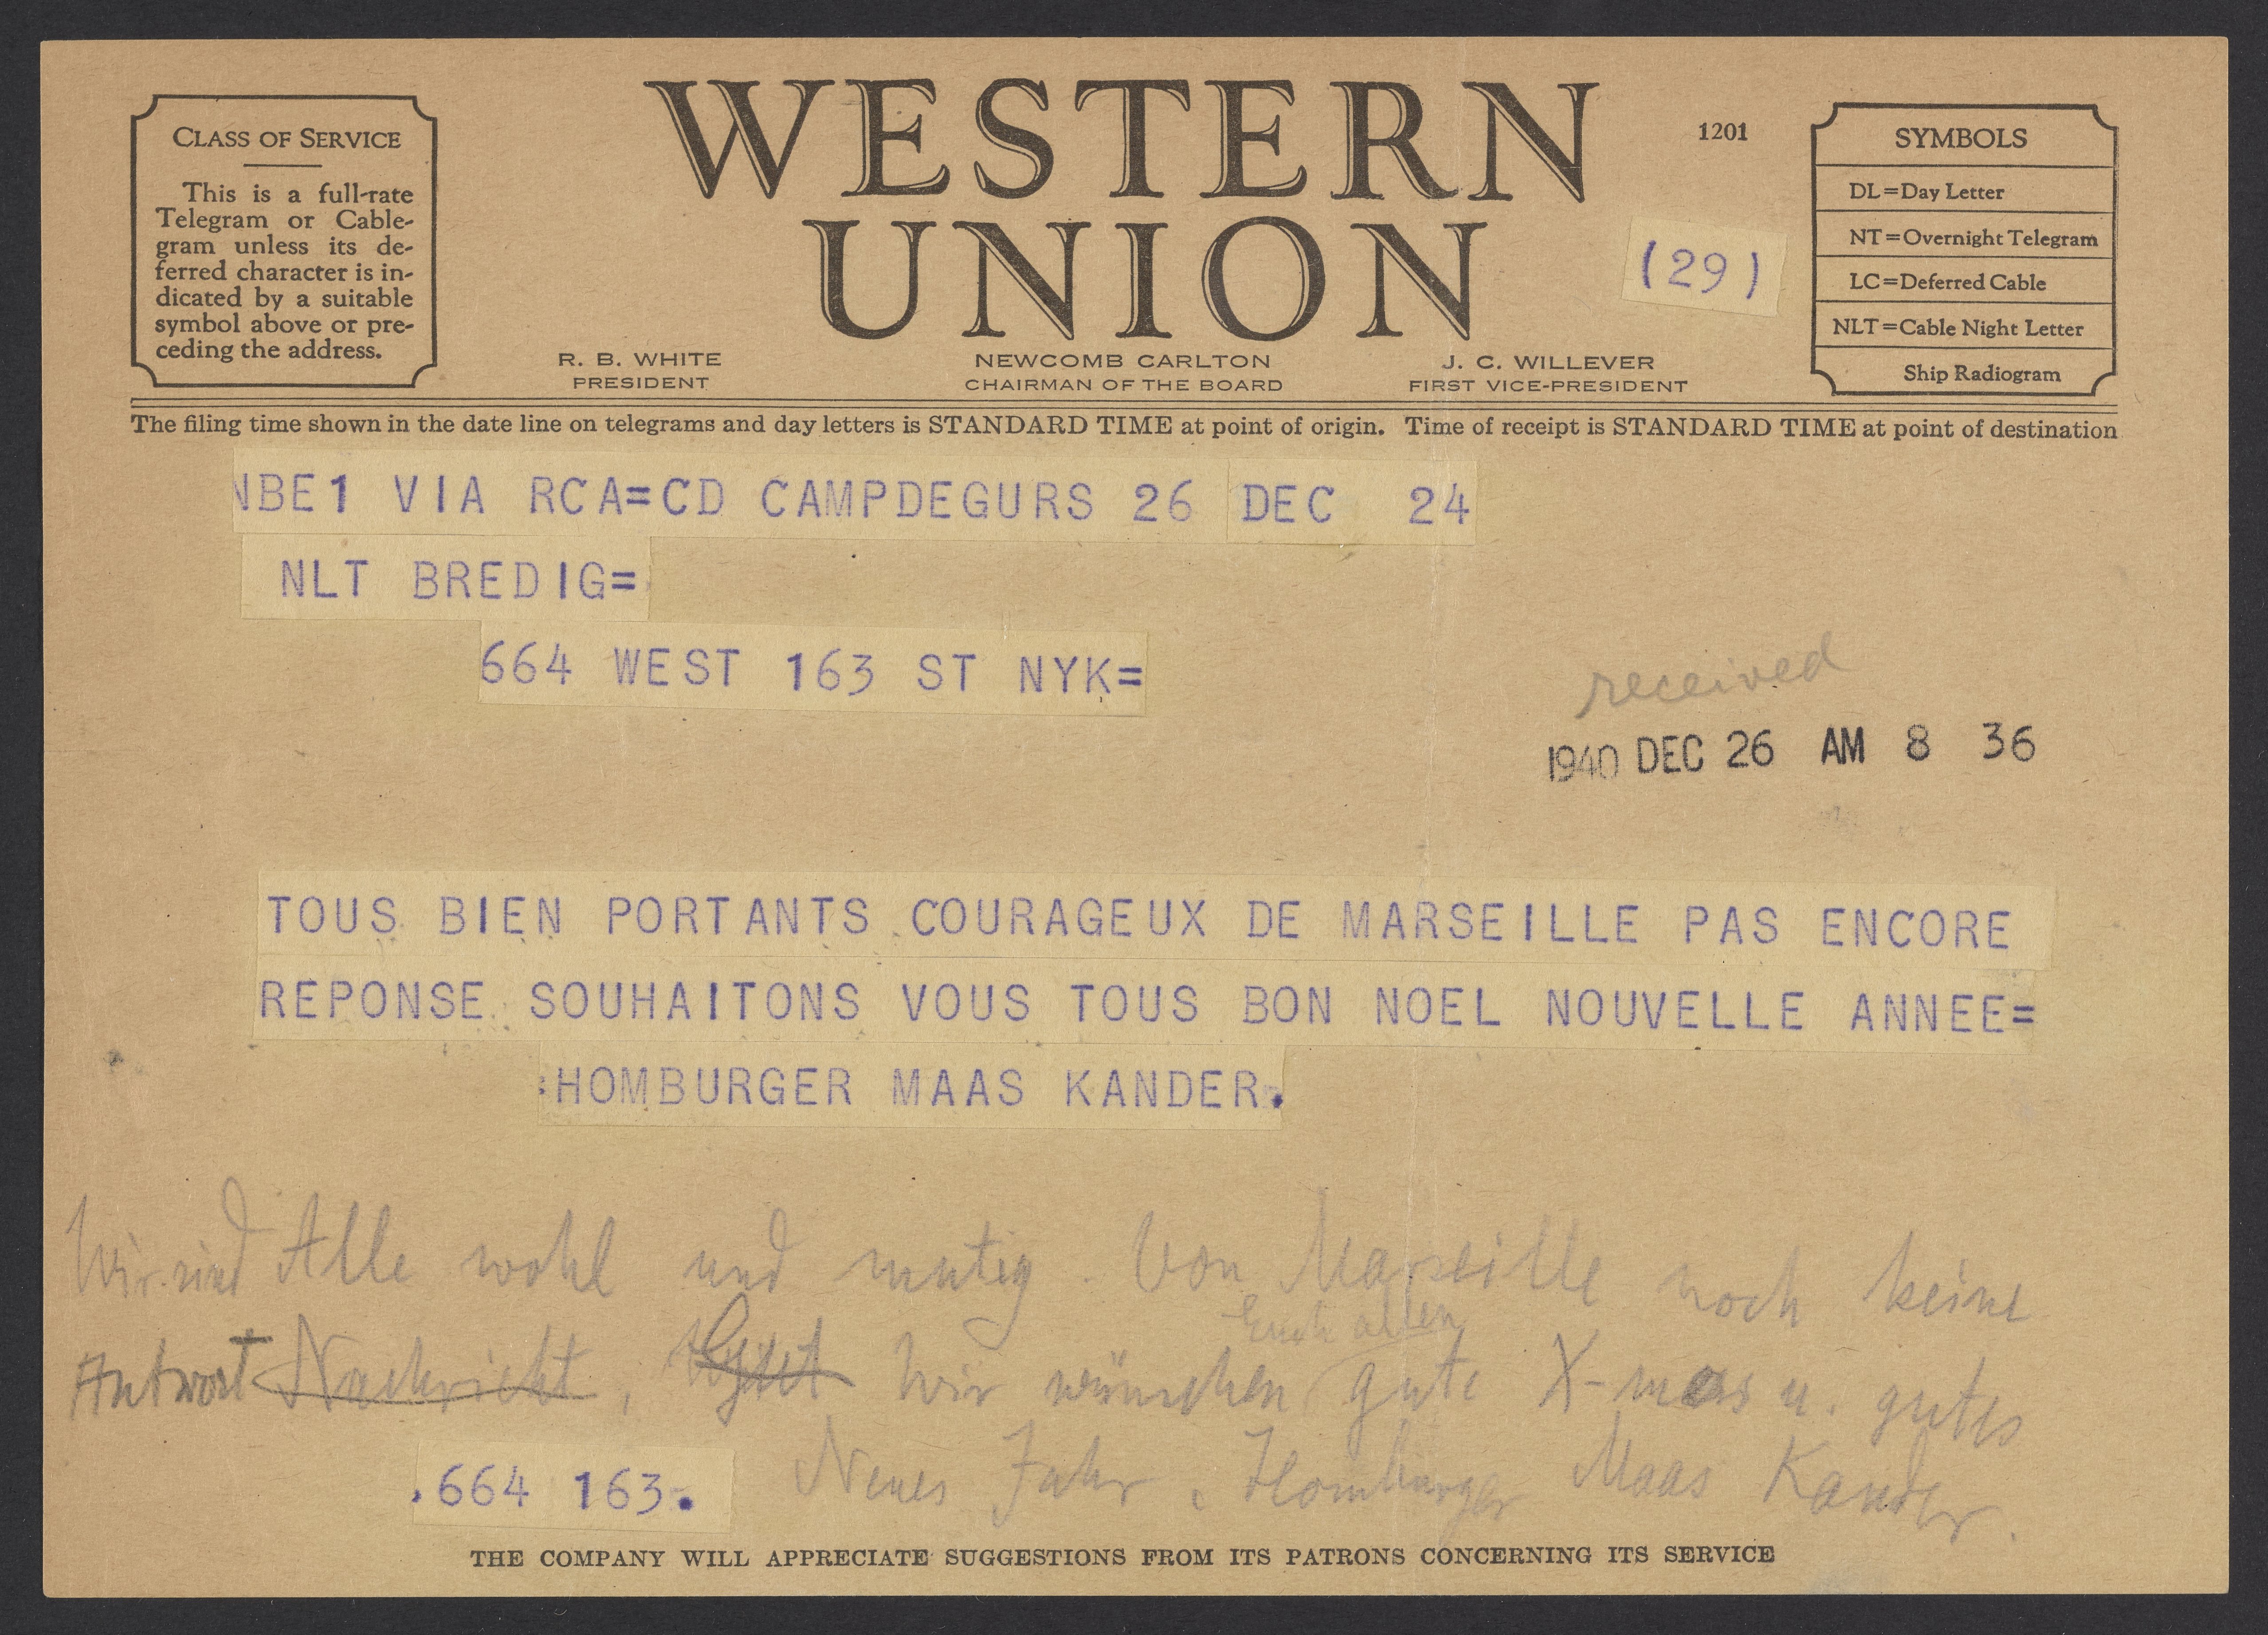 CLASS OF SERVICE
This is a full-rate
Telegram or Cable-
gram unless its de-
ferred character is in-
dicated by a suitable
symbol above or pre-
ceding the address.
WESTERN
UNION
1201
(29)
R. B. WHITE
PRESIDENT
NEWCOMB CARLTON
CHAIRMAN OF THE BOARD
J. C. WILLEVER
FIRST VICE-PRESIDENT
SYMBOLS
DL=Day Letter
NT=Overnight Telegram
LC=Deferred Cable
NLT=Cable Night Letter
Ship Radiogram
The filing time shown in the date line on telegrams and day letters is STANDARD TIME at point of origin. Time of receipt is STANDARD TIME at point of destination
NBE1 VIA RCA=CD CAMPDEGURS 26 DEC 24
NLT BREDIG=
664 WEST 163 ST NYK=
received
1940 DEC 26 AM 8 36
TOUS BIEN PORTANTS COURAGEUX DE MARSEILLE PAS ENCORE
REPONSE SOUHAITONS VOUS TOUS BON NOEL NOUVELLE ANNEE=
:HOMBURGER MAAS KANDER.
Wir sind Alle wohl und mutig. Von Marseille noch keine
Euch allen
Antwort Nachricht, Wir wünschen gute X-mas u. gutes
Neues Jahr. Homburger Maas Kander.
.664 163.
THE COMPANY WILL APPRECIATE SUGGESTIONS FROM ITS PATRONS CONCERNING ITS SERVICE